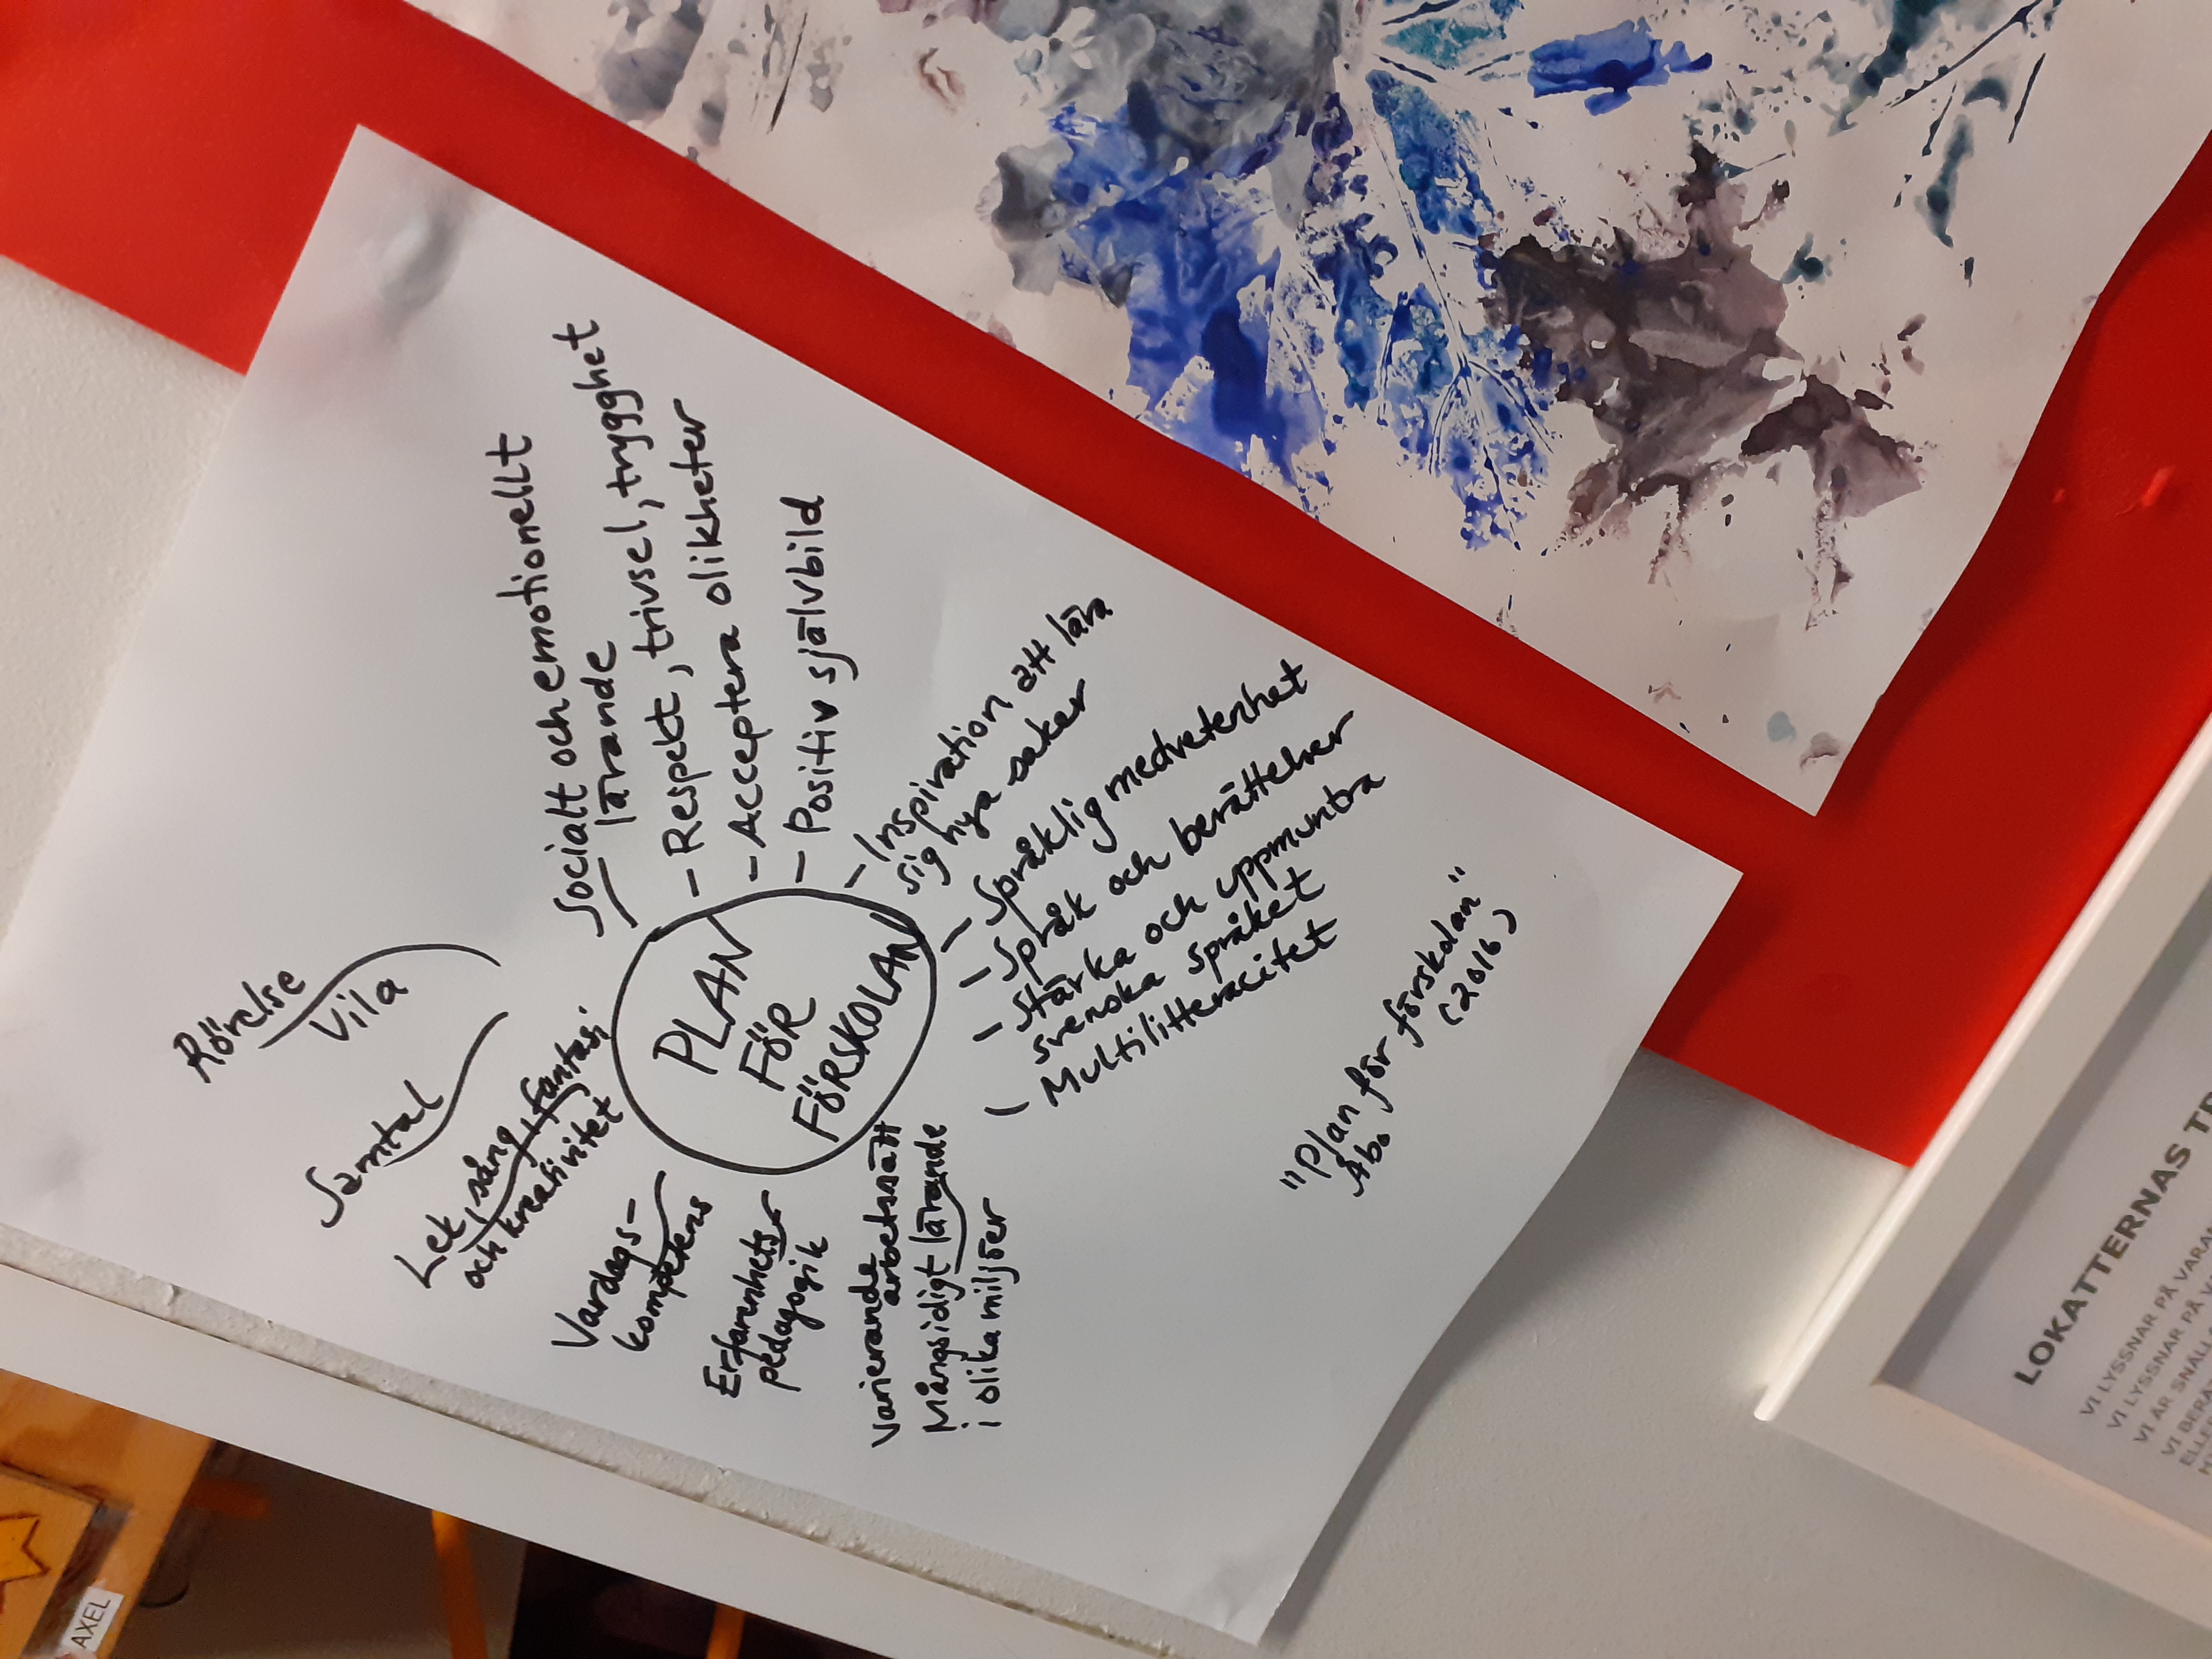 Rörelse
Vila
Samtal
Lek, sång, fantasi
och kreativitet
Vardags-
kompetens
Erfarenhets
pedagogik
Varierande
arbetssätt
Mångsidigt lärande
i olika miljöer
PLAN
FÖR
FÖRSKOLAN
Socialt och emotionellt
lärande
- Respekt, trivsel, trygghet
- Acceptera olikheter
- Positiv självbild
- Inspiration att lära
sig nya saker
- Språklig medvetenhet
- Språk och berättelser
- Stärka och uppmuntra
svenska språket
- Multilitteracitet
"Plan för förskolan"
Åbo (2016)
LOKATTERNAS
VI LYSSNAR PÅ
VI LYSSNAR PÅ
VI ÄR
AXEL